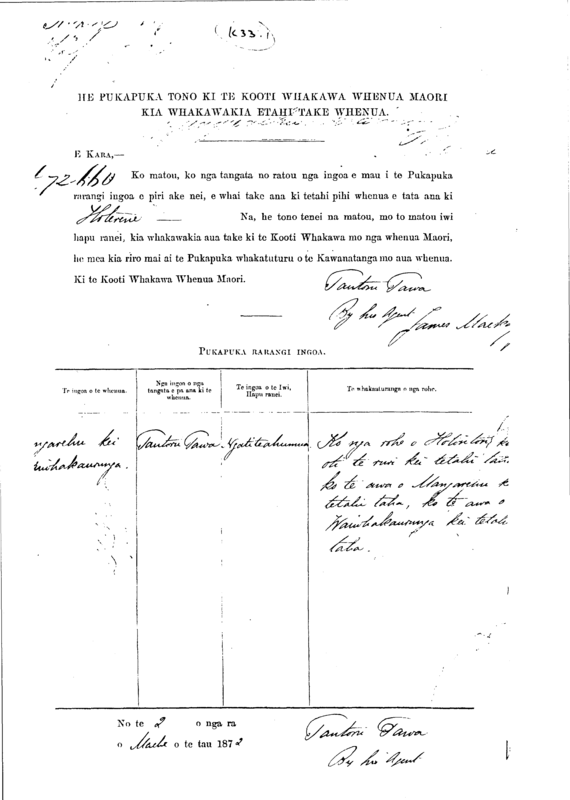 K33.1
HE PUKAPUKA TONO KI TE KOOTI WHAKAWA WHENUA MAORI
KIA WHAKAWAKIA ETAHI TAKE WHENUA.
E KARA,—
72.660
Ko matou, ko nga tangata no ratou nga ingoa e mau i te Pukapuka
rarangi ingoa e piri ake nei, e whai take ana ki tetahi pihi whenua e tata ana ki
Hoterene Na, he tono tenei na matou, mo to matou iwi
hapu ranei, kia whakawakia aua take ki te Kooti Whakawa mo nga whenua Maori,
he mea kia riro mai ai te Pukapuka whakatuturu o te Kawanatanga mo aua whenua.
Ki te Kooti Whakawa Whenua Maori.
Tautoru Tawa
By his Agent
James
PUKAPUKA RARANGI INGOA.
Te ingoa o te whenua.
Nga ingoa o nga
tangata e pa ana ki te
whenua.
Te ingoa o te Iwi,
Hapu ranei.
Te whakaaturanga o nga rohe.
ngarehu kei
Tautoru Tawa
Ngatiteahumua
Ko nga rohe o ko
oti te ruri kei tetahi
ko te awa o Mangarehu k
tetahi taha, ko te awa o
kei tetah
taha.
No te 2 o nga ra
o Maehe o te tau 1872
Tautoru Tawa
By his Agent